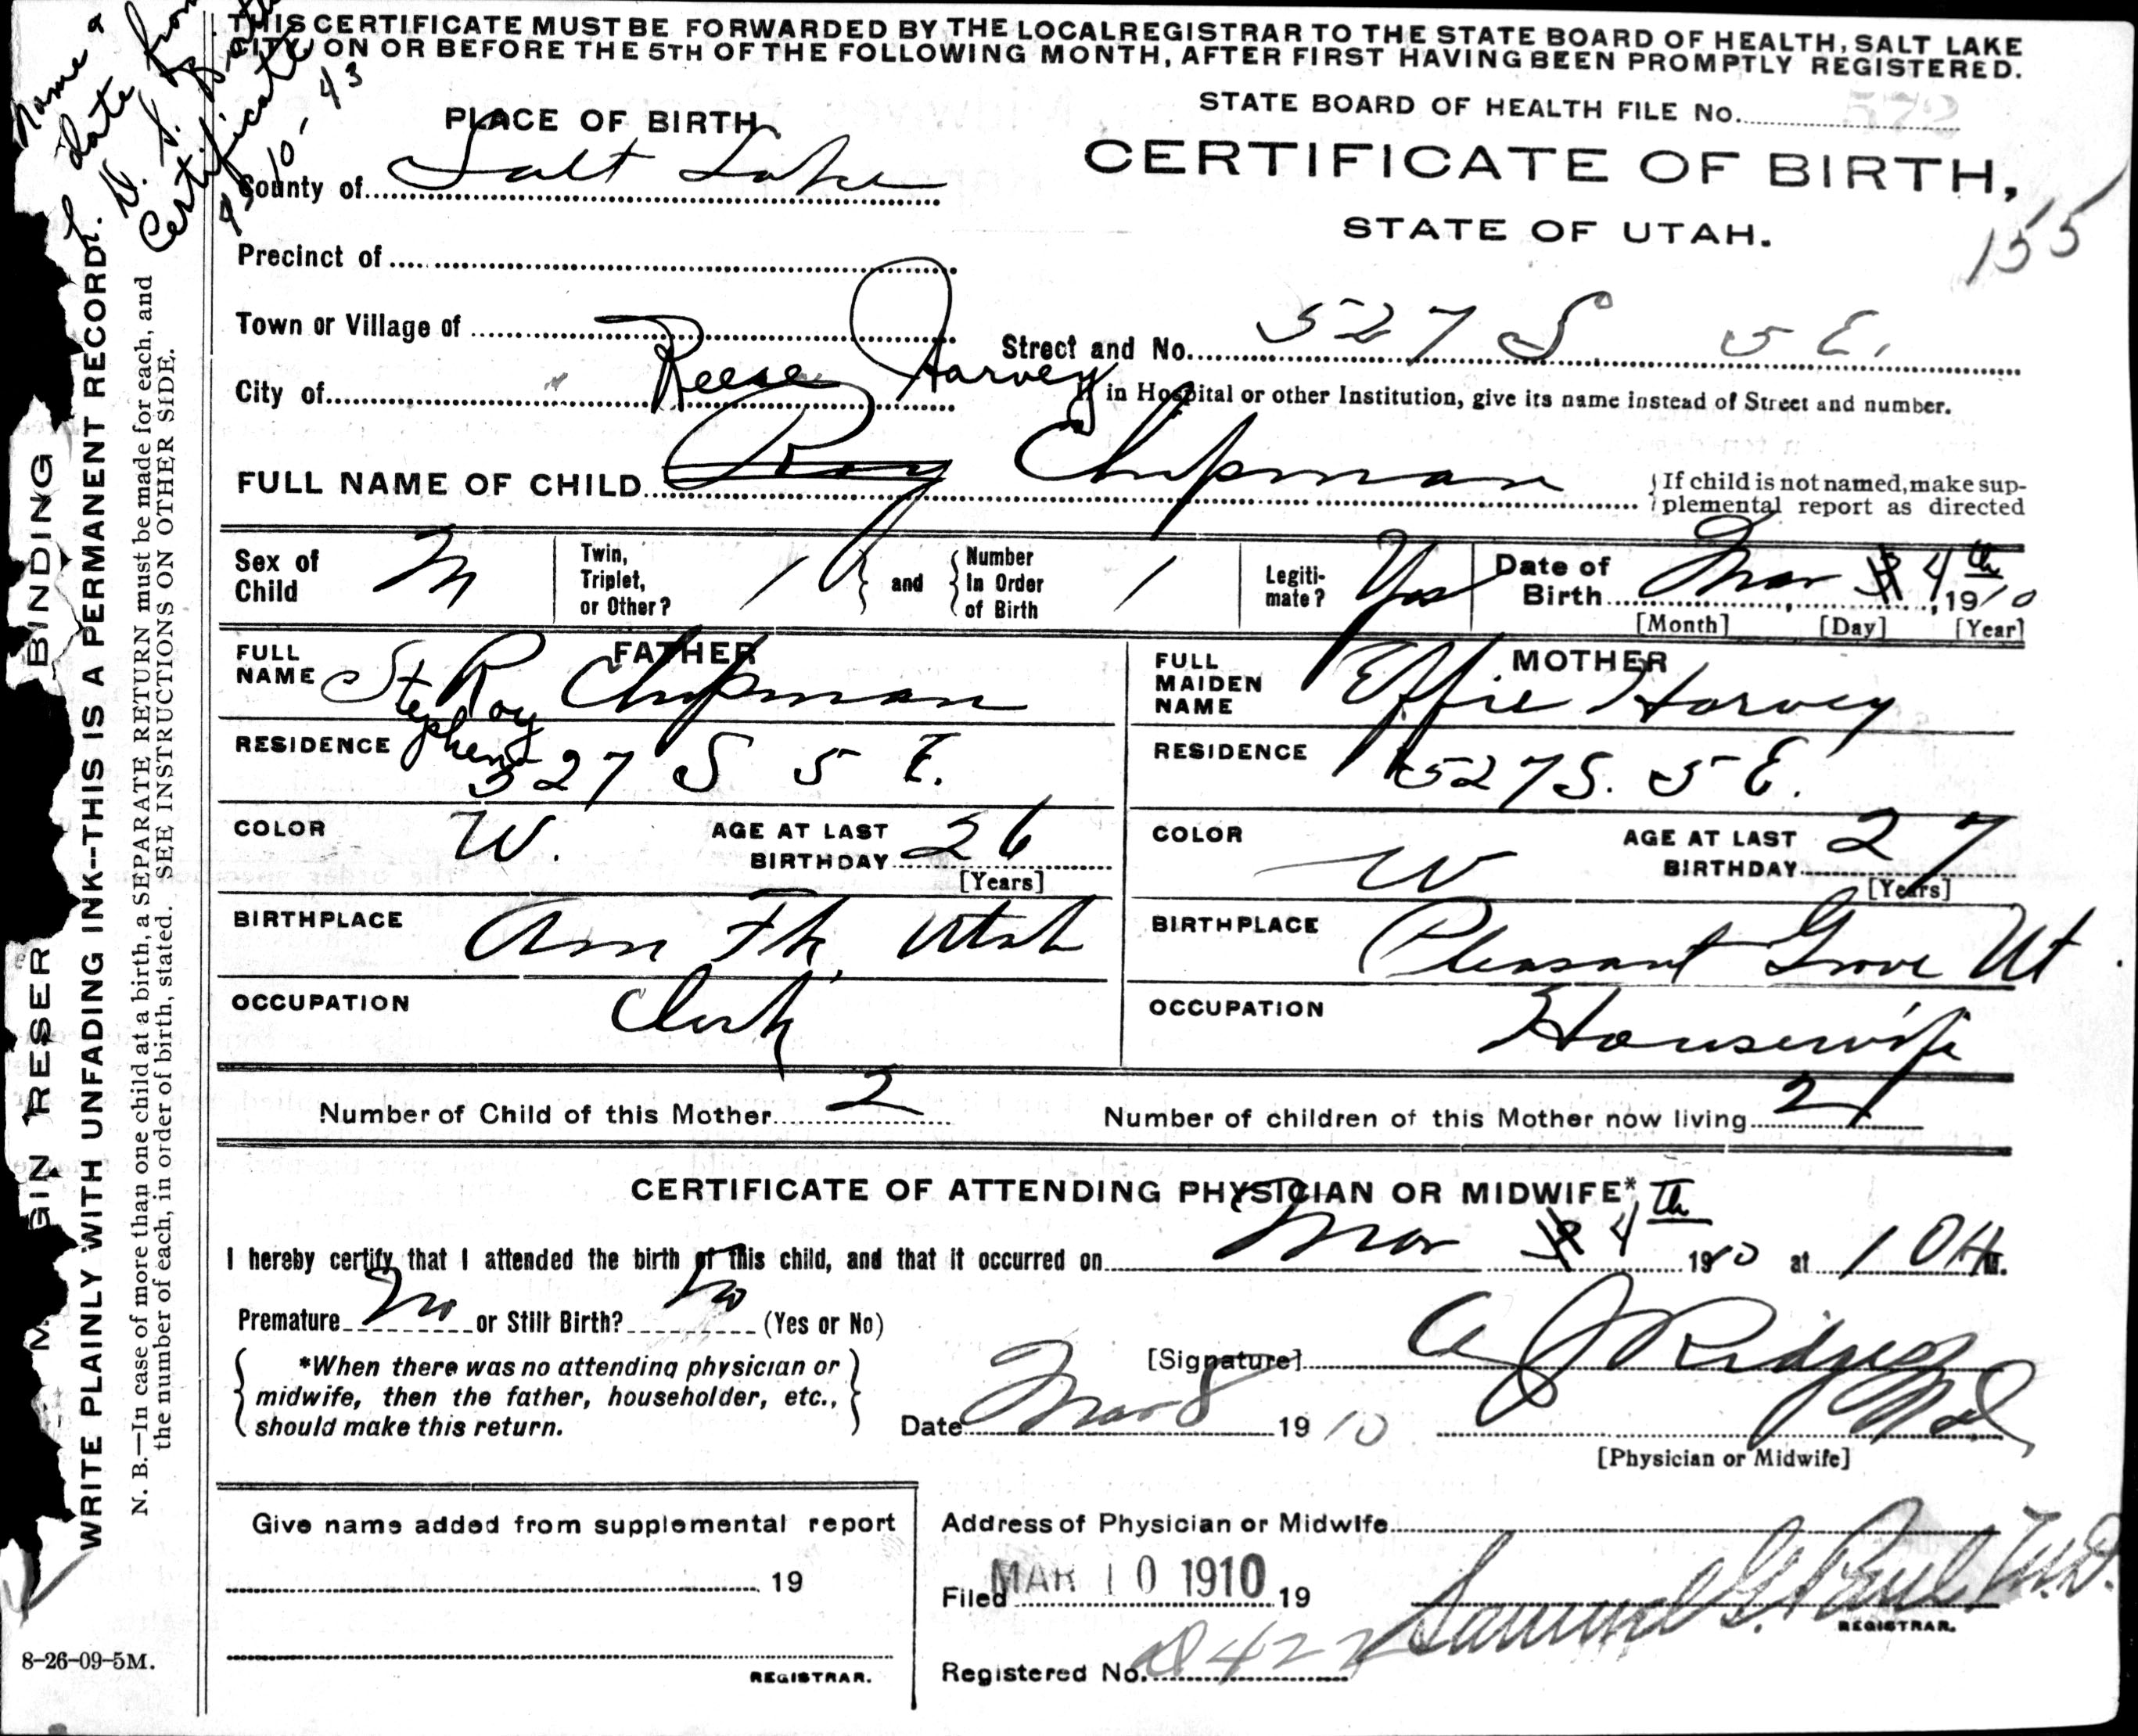 THIS CERTIFICATE MUST BE FORWARDED BY THE LOCALREGISTRAR TO THE STATE BOARD OF HEALTH, SALT LAKE
CITY, ON OR BEFORE THE 5TH OF THE FOLLOWING MONTH, AFTER FIRST HAVING BEEN PROMPTLY REGISTERED.
Name &
date from
Certificate
4-10-43
BINDING
WRITE PLAINLY WITH UNFADING INK--THIS IS A PERMANENT RECORD.
N. B.—In case of more than one child at a birth, a SEPARATE RETURN must be made for each, and
the number of each, in order of birth, stated. SEE INSTRUCTIONS ON OTHER SIDE.
STATE BOARD OF HEALTH FILE No. 572
PLACE OF BIRTH
CERTIFICATE OF BIRTH,
County of Salt Lake
STATE OF UTAH.
155
Precinct of
Town or Village of
Street and No. 527 S. 5 E.
City of
Reese Harvey
If in Hospital or other Institution, give its name instead of Street and number.
FULL NAME OF CHILD Roy Chipman
If child is not named, make sup-
plemental report as directed
Sex of Child M
Twin, Triplet, or Other? 1 and Number In Order of Birth 1
Legiti-mate? Yes
Date of Birth Mar 4th, 1910
[Month] [Day] [Year]
FATHER
FULL NAME St Roy Chipman
Stephen
RESIDENCE 527 S 5 E.
COLOR W. AGE AT LAST BIRTHDAY 26
[Years]
BIRTHPLACE Am Fk, Utah
OCCUPATION Clerk
MOTHER
FULL MAIDEN NAME Effie Harvey
RESIDENCE 527 S. 5 E.
COLOR W AGE AT LAST BIRTHDAY 27
[Years]
BIRTHPLACE Pleasant Grove Ut.
OCCUPATION Housewife
Number of Child of this Mother 2 Number of children of this Mother now living 2
CERTIFICATE OF ATTENDING PHYSICIAN OR MIDWIFE*
I hereby certify that I attended the birth of this child, and that it occurred on Mar 4th 1910 at 1
Premature No or Still Birth? No (Yes or No)
*When there was no attending physician or
midwife, then the father, householder, etc.,
should make this return.
[Signature] A J Ridges
Date Mar 8 1910 Md
[Physician or Midwife]
Give name added from supplemental report
19
REGISTRAR.
Address of Physician or Midwife
Filed MAR 10 1910 19
Samuel G. Paul M.D.
REGISTRAR.
Registered No. 422
8-26-09-5M.